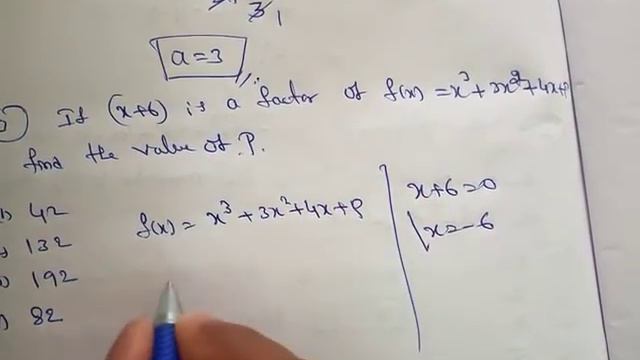 3 1
a=3
If (x+6) is a factor of f(x) = x³+3x²+4x+P
find the value of P.
42
132
192
82
f(x) = x³+3x²+4x+P
x+6=0
x=-6